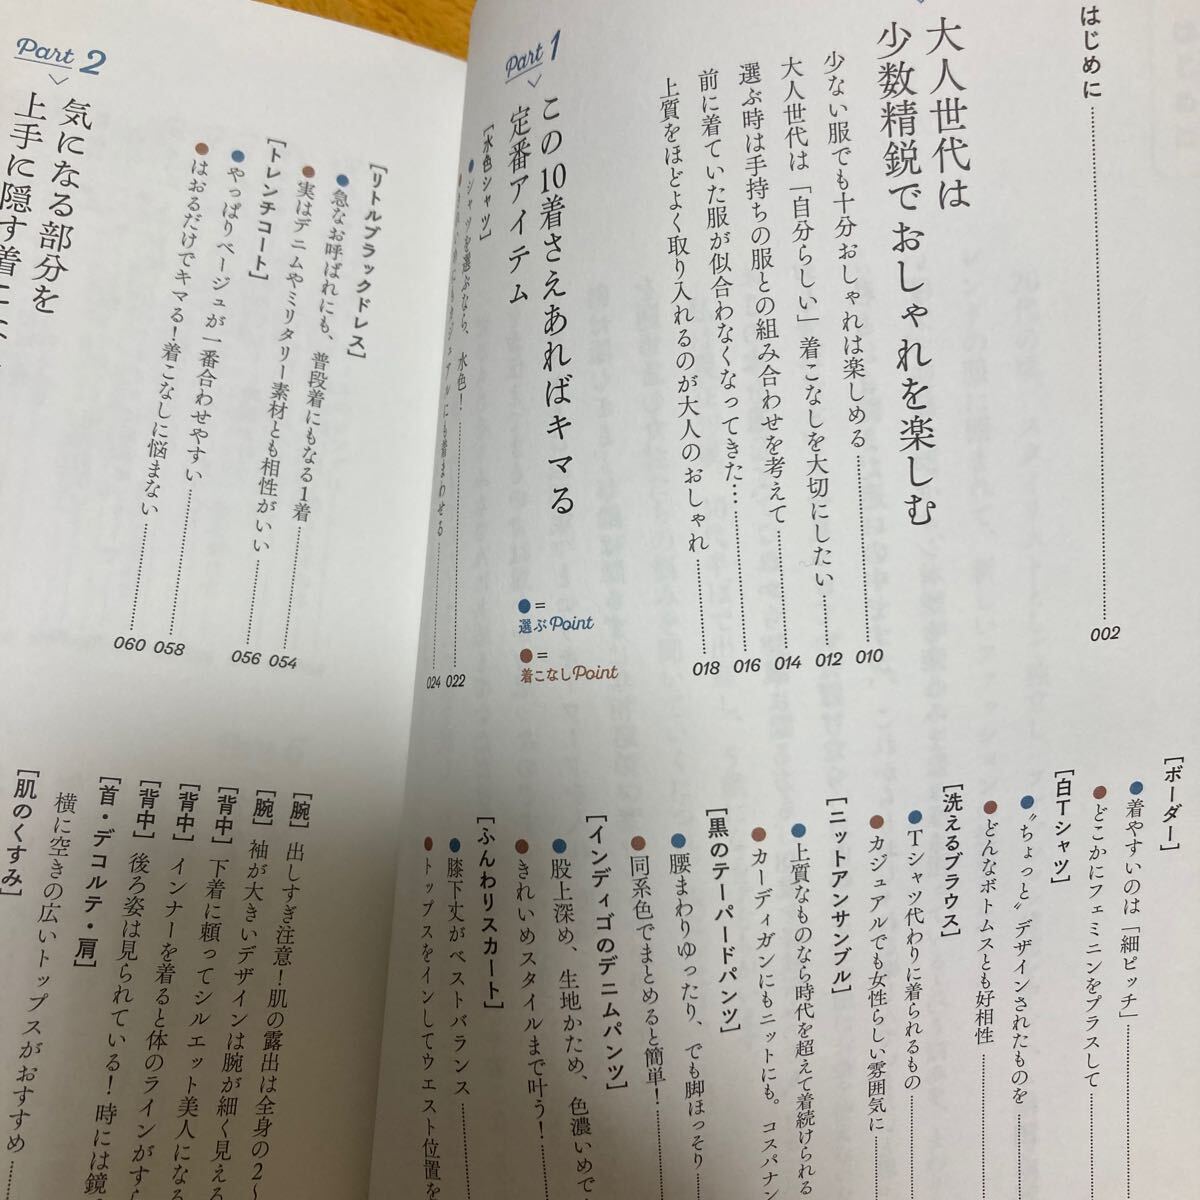 はじめに……002
大人世代は
少数精鋭でおしゃれを楽しむ
少ない服でも十分おしゃれは楽しめる……010
大人世代は「自分らしい」着こなしを大切にしたい……012
選ぶ時は手持ちの服との組み合わせを考えて……014
前に着ていた服が似合わなくなってきた………016
上質をほどよく取り入れるのが大人のおしゃれ……018
Part 1
この10着さえあればキマる
定番アイテム
●=
選ぶPoint
●=
着こなしPoint
[水色シャツ]
●シャツを選ぶなら、水色!……022
カジュアルにも着まわせる……024
[ボーダー]
●着やすいのは「細ピッチ」……
●どこかにフェミニンをプラスして……
[白Tシャツ]
●〝ちょっと〟デザインされたものを……
●どんなボトムスとも好相性……
[洗えるブラウス]
●Tシャツ代わりに着られるもの……
●カジュアルでも女性らしい雰囲気に……
[ニットアンサンブル]
●上質なものなら時代を超えて着続けられる
●カーディガンにもニットにも。コスパナン
[黒のテーパードパンツ]
●腰まわりゆったり、でも脚ほっそり……
●同系色でまとめると簡単!……
[インディゴのデニムパンツ]
●股上深め、生地かため、色濃いめで
●きれいめスタイルまで叶う!……
[ふんわりスカート]
●膝下丈がベストバランス……
●トップスをインしてウエスト位置を
[リトルブラックドレス]
●急なお呼ばれにも、普段着にもなる1着……054
●実はデニムやミリタリー素材とも相性がいい……056
[トレンチコート]
●やっぱりベージュが一番合わせやすい……058
●はおるだけでキマる!着こなしに悩まない……060
Part 2
気になる部分を
上手に隠す着こ
[腕] 出しすぎ注意!肌の露出は全身の2〜
[腕] 袖が大きいデザインは腕が細く見える
[背中] 下着に頼ってシルエット美人になる
[背中] インナーを着ると体のラインがす
[背中] 後ろ姿は見られている!時には鏡
[首・デコルテ・肩]
横に空きの広いトップスがおすすめ……
[肌のくすみ]